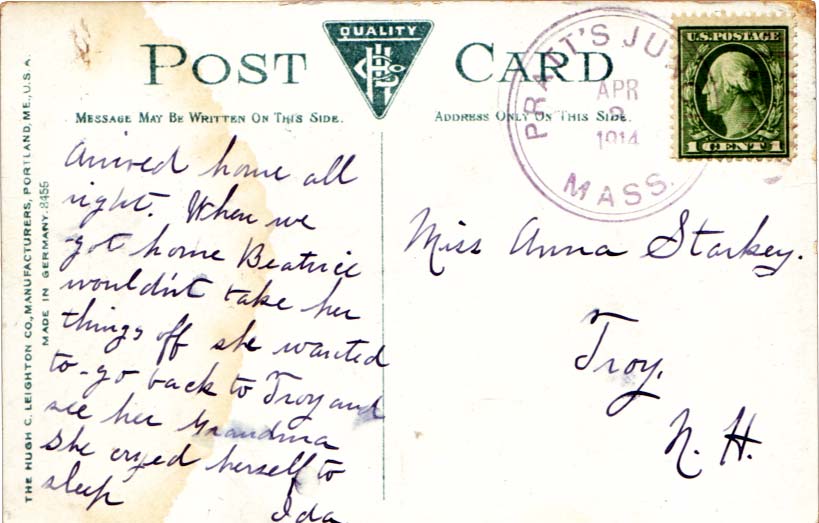 QUALITY
HLCo
POST CARD
MESSAGE MAY BE WRITTEN ON THIS SIDE.
ADDRESS ONLY ON THIS SIDE.
THE HUGH C. LEIGHTON CO., MANUFACTURERS, PORTLAND, ME., U.S.A.
MADE IN GERMANY. 8455
PRATT'S JU
APR
2
1914
MASS.
U.S. POSTAGE
1 CENT 1
Arrived home all
right. When we
got home Beatrice
wouldn't take her
things off she wanted
to go back to Troy and
see her Grandma
She cryed herself to
sleep
Ida
Miss Anna Starkey.
Troy.
N. H.